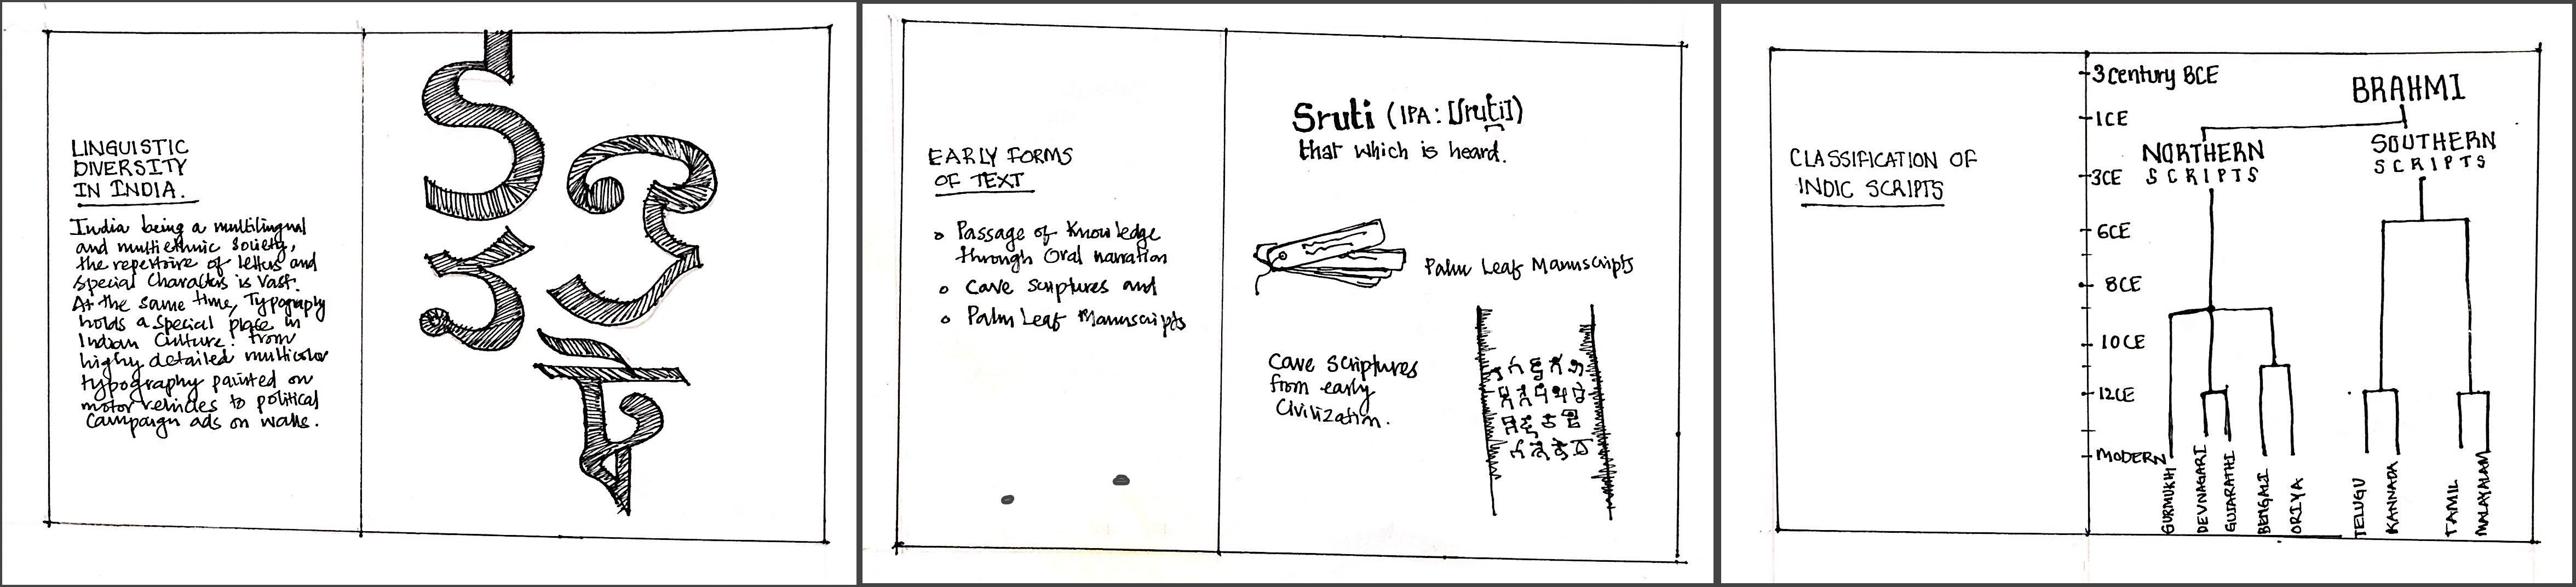 LINGUISTIC
DIVERSITY
IN INDIA.
India being a multilingual
and multiethnic society,
the repertoire of letters and
special characters is vast.
At the same time, Typography
holds a special place in
Indian Culture! from
highly detailed multicolor
typography painted on
motor vehicles to political
Campaign ads on walls.
EARLY FORMS
OF TEXT
Passage of Knowledge
through Oral narration
Cave scriptures and
Palm Leaf Manuscripts
Sruti (IPA: [ʃruti])
that which is heard.
Palm Leaf Manuscripts
Cave Scriptures
from early
Civilization.
CLASSIFICATION OF
INDIC SCRIPTS
3 Century BCE
1CE
3CE
6CE
8CE
10CE
12CE
MODERN
BRAHMI
NORTHERN
SCRIPTS
SOUTHERN
SCRIPTS
GURMUKH
DEVNAGARI
GUJARATHI
BENGALI
ORIYA
TELUGU
KANNADA
TAMIL
MALAYALAM